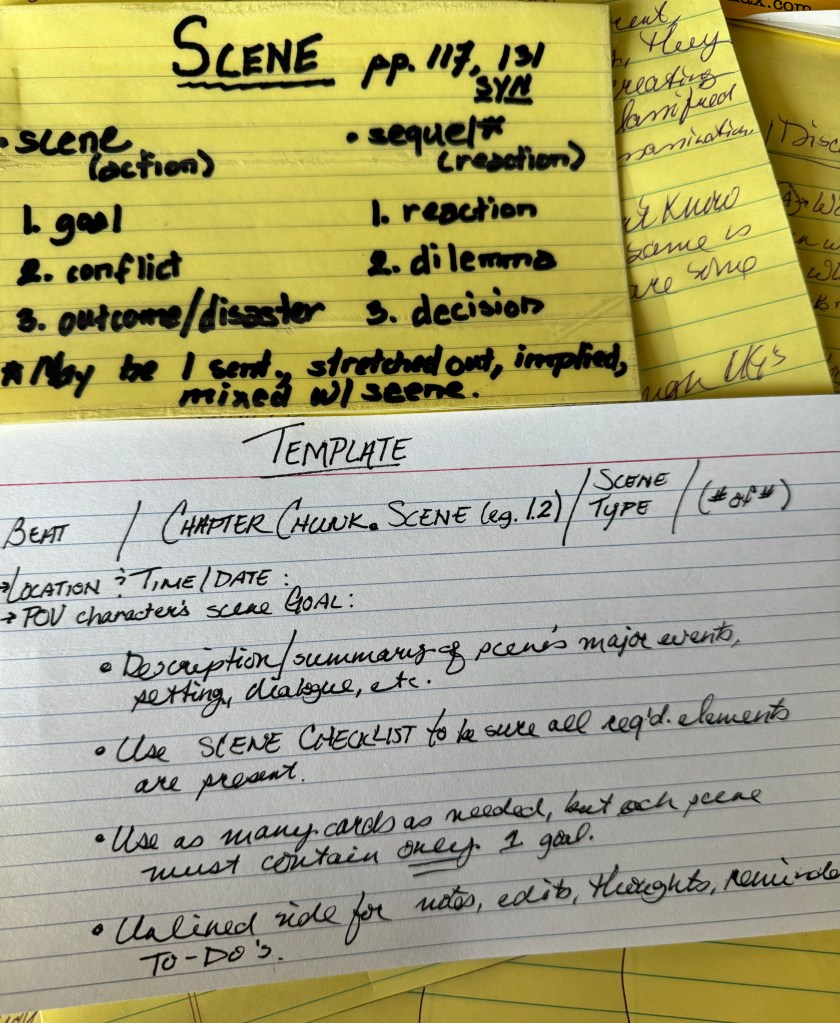 SCENE pp. 117, 131
SYN
• scene • sequel*
(action) (reaction)
1. goal 1. reaction
2. conflict 2. dilemma
3. outcome/disaster 3. decision
* May be 1 sent., stretched out, implied,
mixed w/ scene.
they
creating
classified
Know
scene is
are some
TEMPLATE
BEAT / CHAPTER CHUNK. SCENE (eg. 1.2) / SCENE TYPE / (# of #)
→ LOCATION & TIME/DATE:
→ POV character's scene GOAL:
• Description/summary of scene's major events,
setting, dialogue, etc.
• Use SCENE CHECKLIST to be sure all req'd. elements
are present.
• Use as many cards as needed, but each scene
must contain only 1 goal.
• Unlined side for notes, edits, thoughts, reminde
TO-DO's.